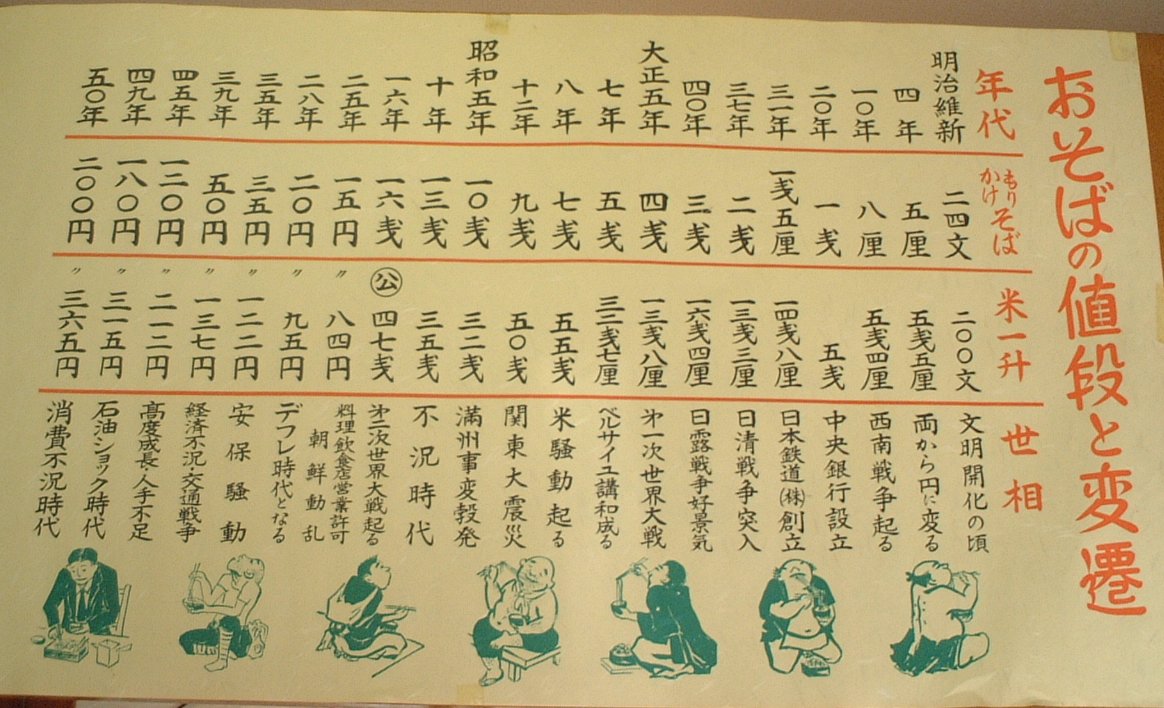 おそばの値段と変遷
年代
もりかけそば
米一升
世相
明治維新 二四文 二〇〇文 文明開化の頃
四年 五厘 五戋五厘 両から円に変る
一〇年 八厘 五戋四厘 西南戦争起る
二〇年 一戋 五戋 中央銀行設立
三一年 一戋五厘 一四戋八厘 日本鉄道(株)創立
三七年 二戋 一三戋三厘 日清戦争突入
四〇年 三戋 一六戋四厘 日露戦争好景気
大正五年 四戋 一三戋八厘 㐧一次世界大戦
七年 五戋 三三戋七厘 ベルサイユ講和成る
八年 七戋 五五戋 米騒動起る
十二年 九戋 五〇戋 関東大震災
昭和五年 一〇戋 三二戋 満州事変勃発
十年 一三戋 三五戋 不況時代
一六年 一六戋 公 四七戋 㐧二次世界大戦起る
二五年 一五円 〃 八四円 料理飲食店営業許可
朝鮮動乱
二八年 二〇円 〃 九五円 デフレ時代となる
三五年 三五円 〃 一二二円 安保騒動
三九年 五〇円 〃 一三七円 経済不況・交通戦争
四五年 一二〇円 〃 二一二円 高度成長・人手不足
四九年 一八〇円 〃 三一五円 石油ショック時代
五〇年 二〇〇円 〃 三六五円 消費不況時代